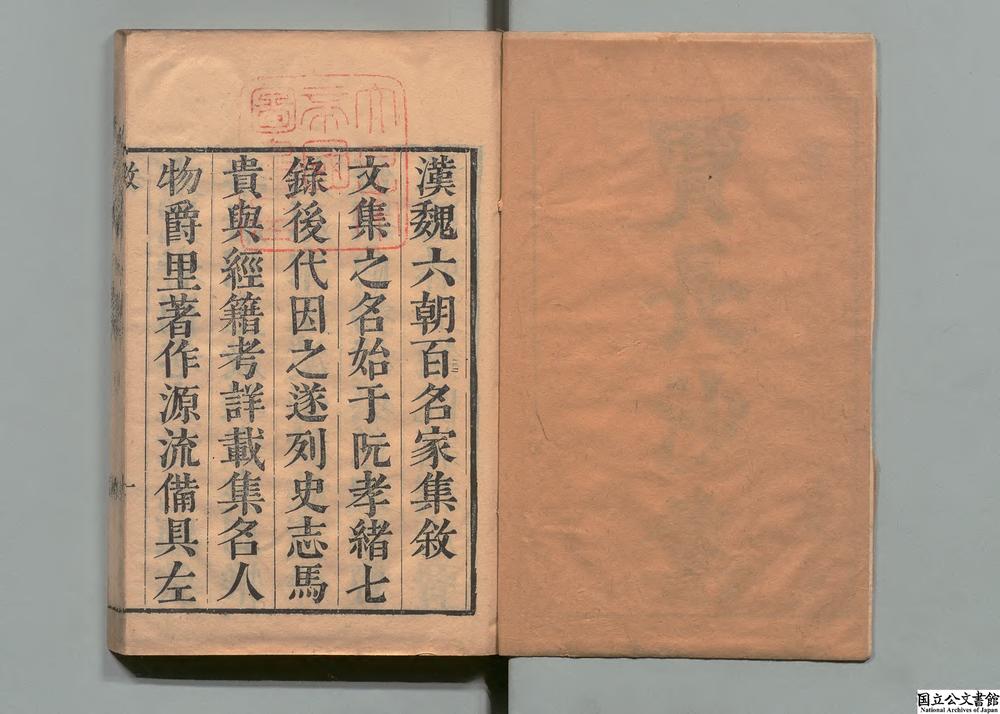 漢魏六朝百名家集敘
文集之名始于阮孝緒七
錄後代因之遂列史志馬
貴與經籍考詳載集名人
物爵里著作源流備具左
敘
一
国立公文書館
National Archives of Japan